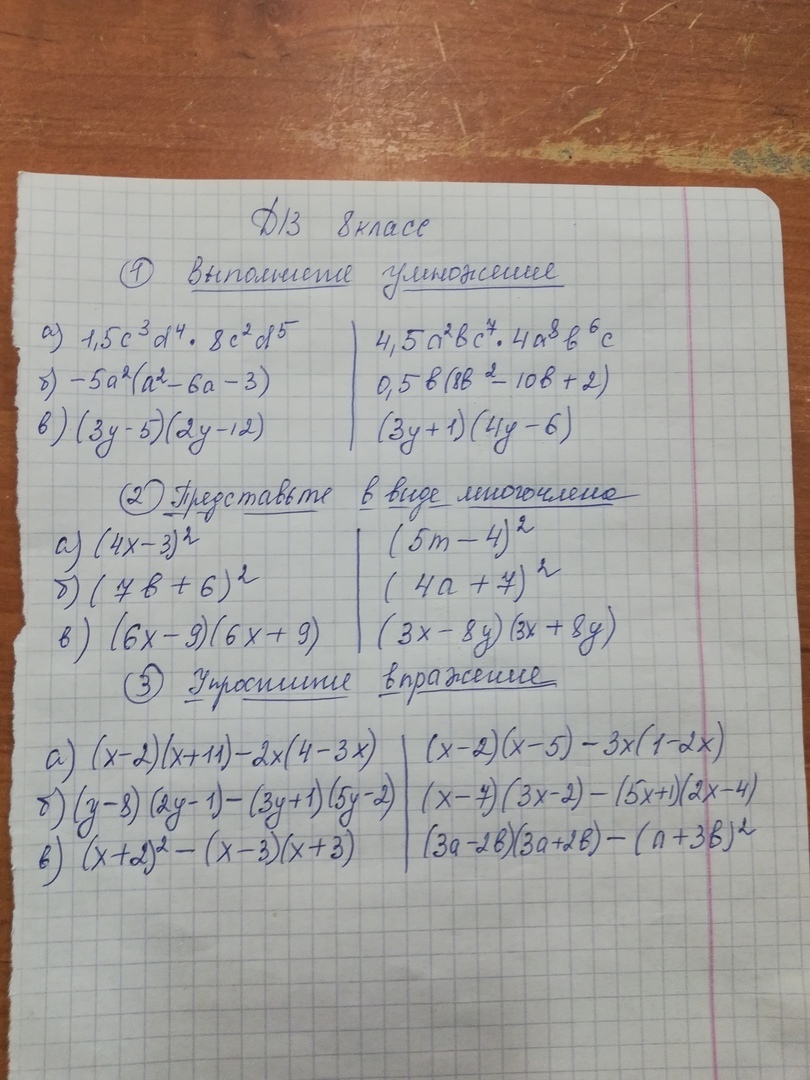 Д/З 8 класс
① Выполните умножение
а) 1,5c³d⁴ · 8c²d⁵ | 4,5a²bc⁷ · 4a⁸b⁶c
б) -5a²(a² - 6a - 3) | 0,5b(8b² - 10b + 2)
в) (3y - 5)(2y - 12) | (3y + 1)(4y - 6)
② Представьте в виде многочлена
а) (4x - 3)² | (5m - 4)²
б) (7b + 6)² | (4a + 7)²
в) (6x - 9)(6x + 9) | (3x - 8y)(3x + 8y)
③ Упростите выражение
а) (x - 2)(x + 11) - 2x(4 - 3x) | (x - 2)(x - 5) - 3x(1 - 2x)
б) (y - 8)(2y - 1) - (3y + 1)(5y - 2) | (x - 7)(3x - 2) - (5x + 1)(2x - 4)
в) (x + 2)² - (x - 3)(x + 3) | (3a - 2b)(3a + 2b) - (a + 3b)²